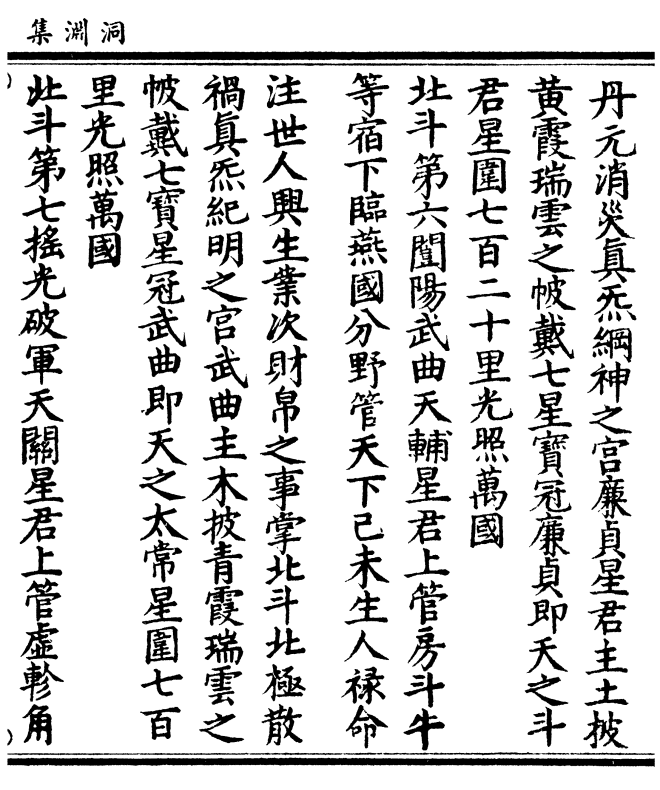 洞淵集
丹元消災眞炁綱神之宮廉貞星君主土披
黃霞瑞雲之帔戴七星寶冠廉貞即天之斗
君星圍七百二十里光照萬國
北斗第六闓陽武曲天輔星君上管房斗牛
等宿下臨燕國分野管天下己未生人祿命
注世人興生業次財帛之事掌北斗北極散
禍眞炁紀明之宮武曲主木披青霞瑞雲之
帔戴七寶星冠武曲即天之太常星圍七百
里光照萬國
北斗第七搖光破軍天關星君上管虛軫角